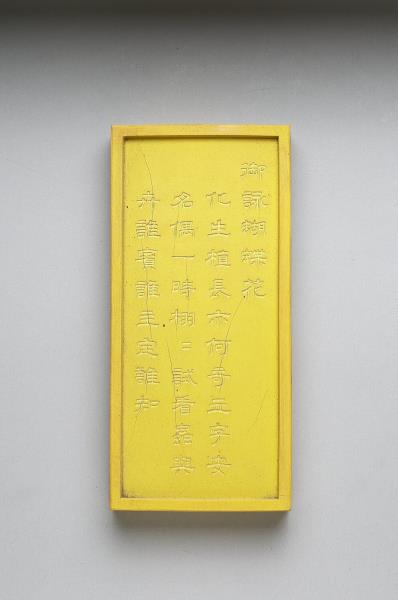 御詠蝴蝶花
化生植長亦何奇三字安
名偶一時栩〻試看蟲與
卉誰賓誰主定誰知